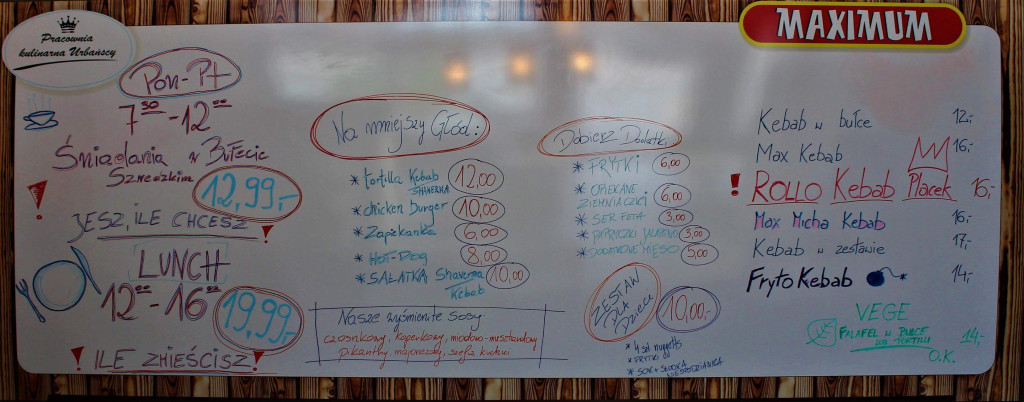 Pracownia
kulinarna Urbańscy
MAXIMUM
Pon-Pt
7³⁰-12⁰⁰
Śniadania w Bufecie
Szwedzkim
12,99,-
JESZ, ILE CHCESZ!
LUNCH
12⁰⁰-16⁰⁰
19,99,-
! ILE ZMIEŚCISZ!
Na mniejszy Głód:
* tortilla Kebab 12,00
SHAWERMA
* chicken Burger 10,00
* Zapiekanka 6,00
* HOT-DOG 8,00
* SAŁATKA Shawerma 10,00
Kebab
Nasze wyśmienite Sosy
czosnkowy, koperkowy, miodowo-musztardowy
pikantny, majonezowy, szefa kuchni
Dobierz Dodatki
* FRYTKI 6,00
* OPIEKANE
ZIEMNIACZKI 6,00
* SER FETA 3,00
* PAPRYCZKI JALAPENO 3,00
* DODATKOWE MIĘSO 5,00
ZESTAW
DLA
Dzieci 10,00,-
* 4 szt nuggetts
* FRYTKI
* SOK + SŁODKA
NIESPODZIANKA
Kebab w bułce 12,-
Max Kebab 16,-
! ROLLO Kebab Placek 16,-
Max Micha Kebab 16,-
Kebab w zestawie 17,-
Fryto Kebab 14,-
VEGE
FALAFEL w BUŁCE 14,-
LUB TORTILLI
O.K.